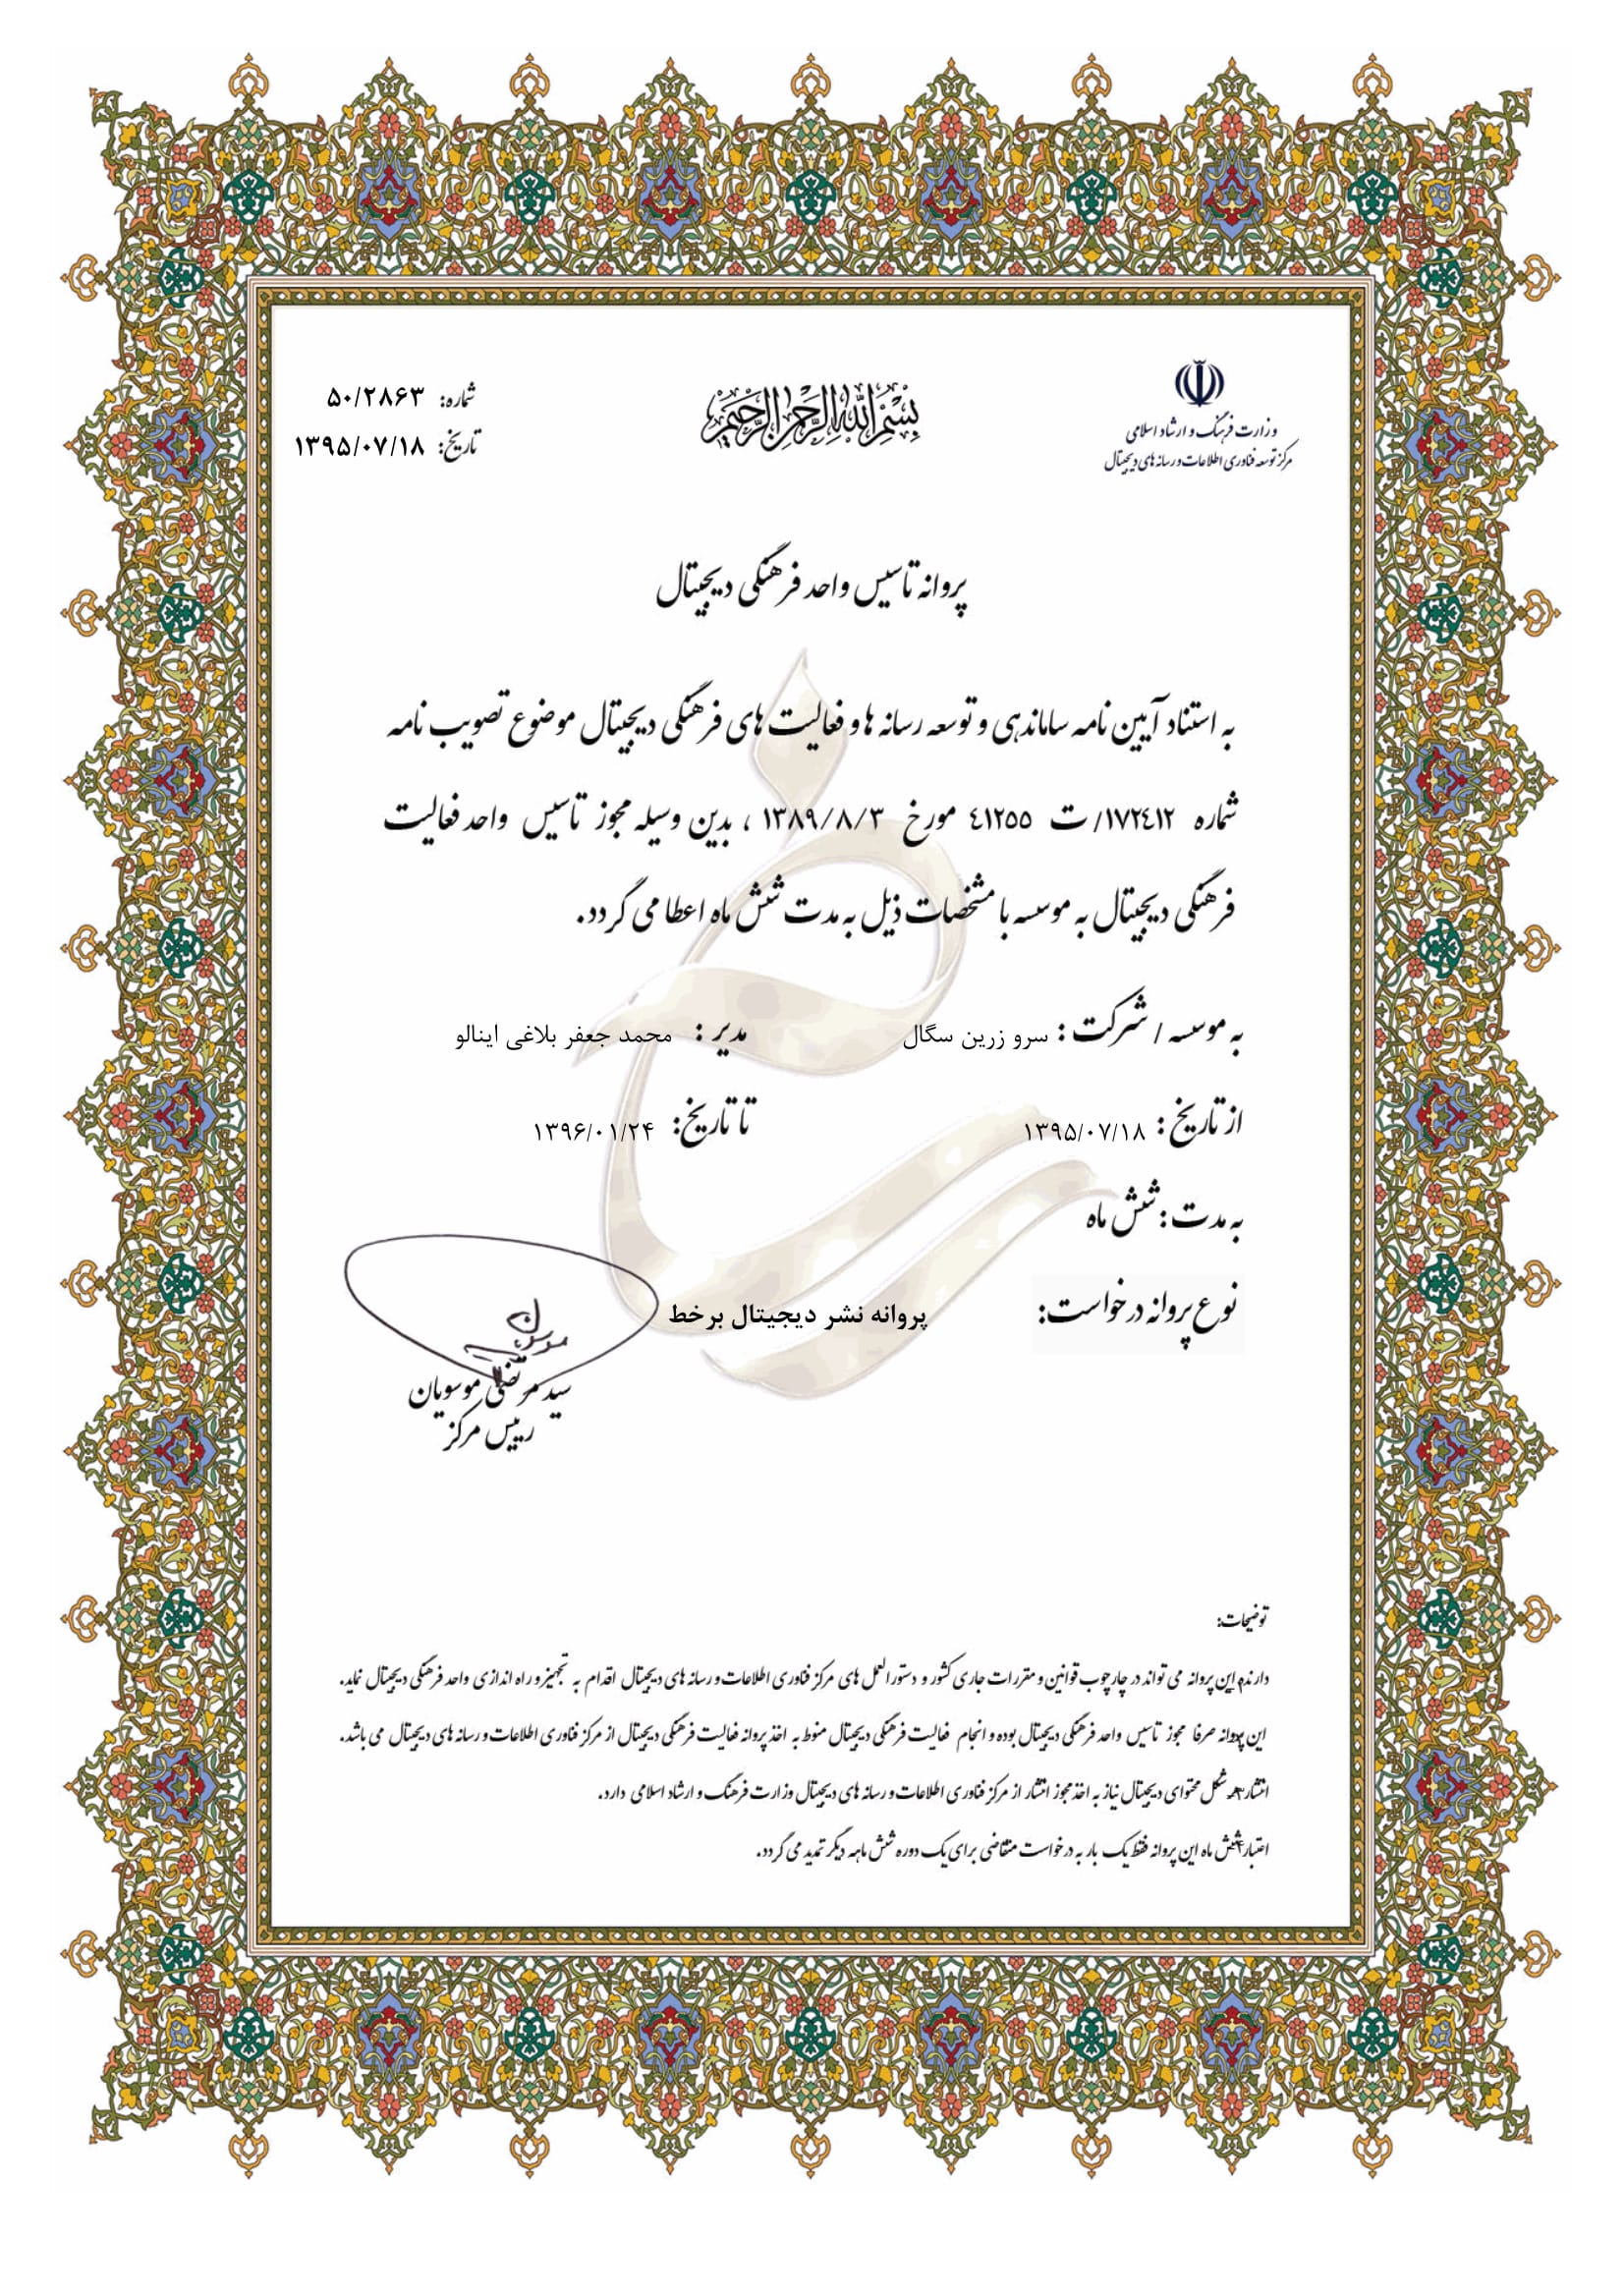 وزارت فرهنگ و ارشاد اسلامی
مرکز توسعه فناوری اطلاعات و رسانه های دیجیتال
بسم الله الرحمن الرحیم
شماره: ۵۰/۲۸۶۳
تاریخ: ۱۳۹۵/۰۷/۱۸
پروانه تاسیس واحد فرهنگی دیجیتال
به استناد آیین نامه ساماندهی و توسعه رسانه ها و فعالیت های فرهنگی دیجیتال موضوع تصویب نامه
شماره ۱۷۲٤۱۲/ ت ٤۱۲۵۵ مورخ ۱۳۸۹/۸/۳ ، بدین وسیله مجوز تاسیس واحد فعالیت
فرهنگی دیجیتال به موسسه با مشخصات ذیل به مدت شش ماه اعطا می گردد.
به موسسه / شرکت : سرو زرین سگال مدیر : محمد جعفر بلاغی اینالو
از تاریخ : ۱۳۹۵/۰۷/۱۸ تا تاریخ: ۱۳۹۶/۰۱/۲۴
به مدت : شش ماه
نوع پروانه درخواست: پروانه نشر دیجیتال برخط
سید مرتضی موسویان
رییس مرکز
توضیحات:
دارنده این پروانه می تواند در چارچوب قوانین و مقررات جاری کشور و دستورالعمل های مرکز فناوری اطلاعات و رسانه های دیجیتال اقدام به تجهیز و راه اندازی واحد فرهنگی دیجیتال نماید.
این پروانه صرفا مجوز تاسیس واحد فرهنگی دیجیتال بوده و انجام فعالیت فرهنگی دیجیتال منوط به اخذ پروانه فعالیت فرهنگی دیجیتال از مرکز فناوری اطلاعات و رسانه های دیجیتال می باشد.
انتشار هر شکل محتوای دیجیتال نیاز به اخذ مجوز انتشار از مرکز فناوری اطلاعات و رسانه های دیجیتال وزارت فرهنگ و ارشاد اسلامی دارد.
اعتبار شش ماه این پروانه فقط یک بار به درخواست متقاضی برای یک دوره شش ماهه دیگر تمدید می گردد.